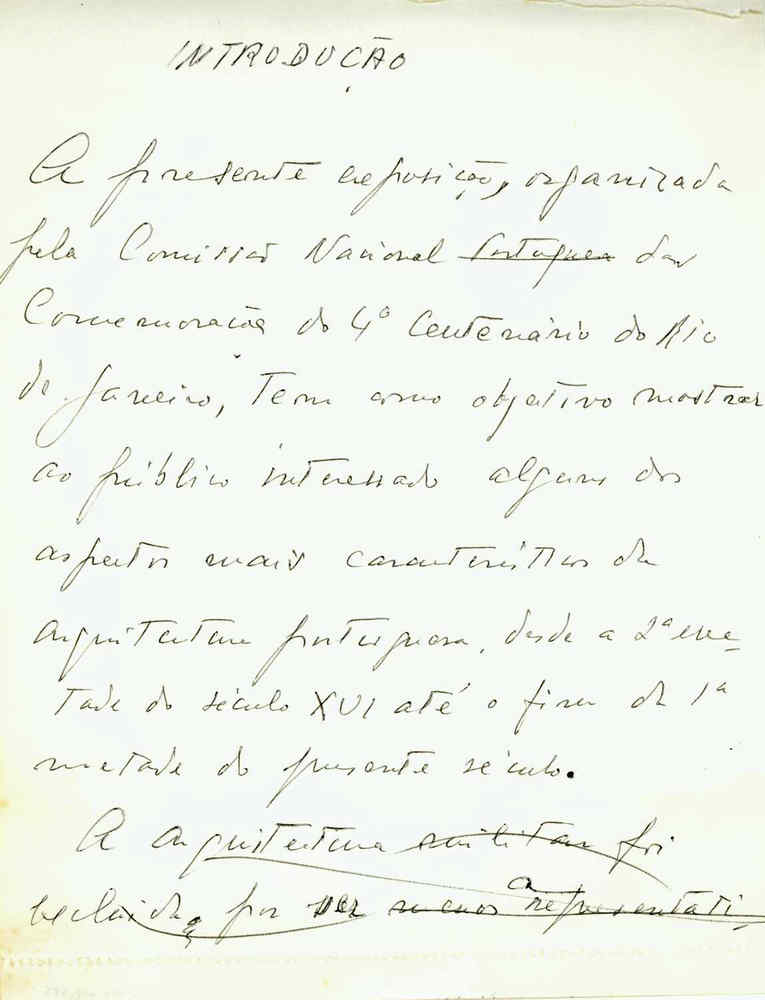 INTRODUÇÃO
A presente exposição, organizada
pela Comissão Nacional Portuguesa das
Comemorações do 4º Centenário do Rio
de Janeiro, tem como objetivo mostrar
ao público interessado alguns dos
aspectos mais característicos da
arquitectura portuguesa, desde a 2ª me-
tade do século XVI até o fim da 1ª
metade do presente século.
A arquitectura militar foi
excluida, por ser menos representati-